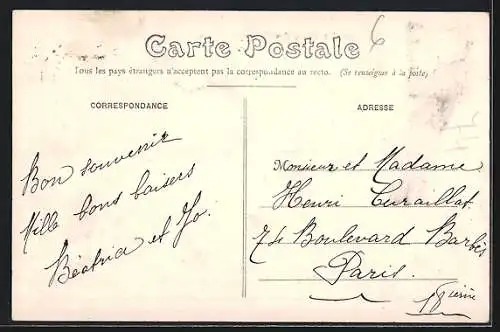 Carte Postale
6
Tous les pays étrangers n'acceptent pas la correspondance au recto. (Se renseigner à la poste)
CORRESPONDANCE
Bon souvenir
Mille bons baisers
Béatria et Jo.
ADRESSE
Monsieur et Madame
Henri Curaillat
74 Boulevard Barbès
Paris.
18ième